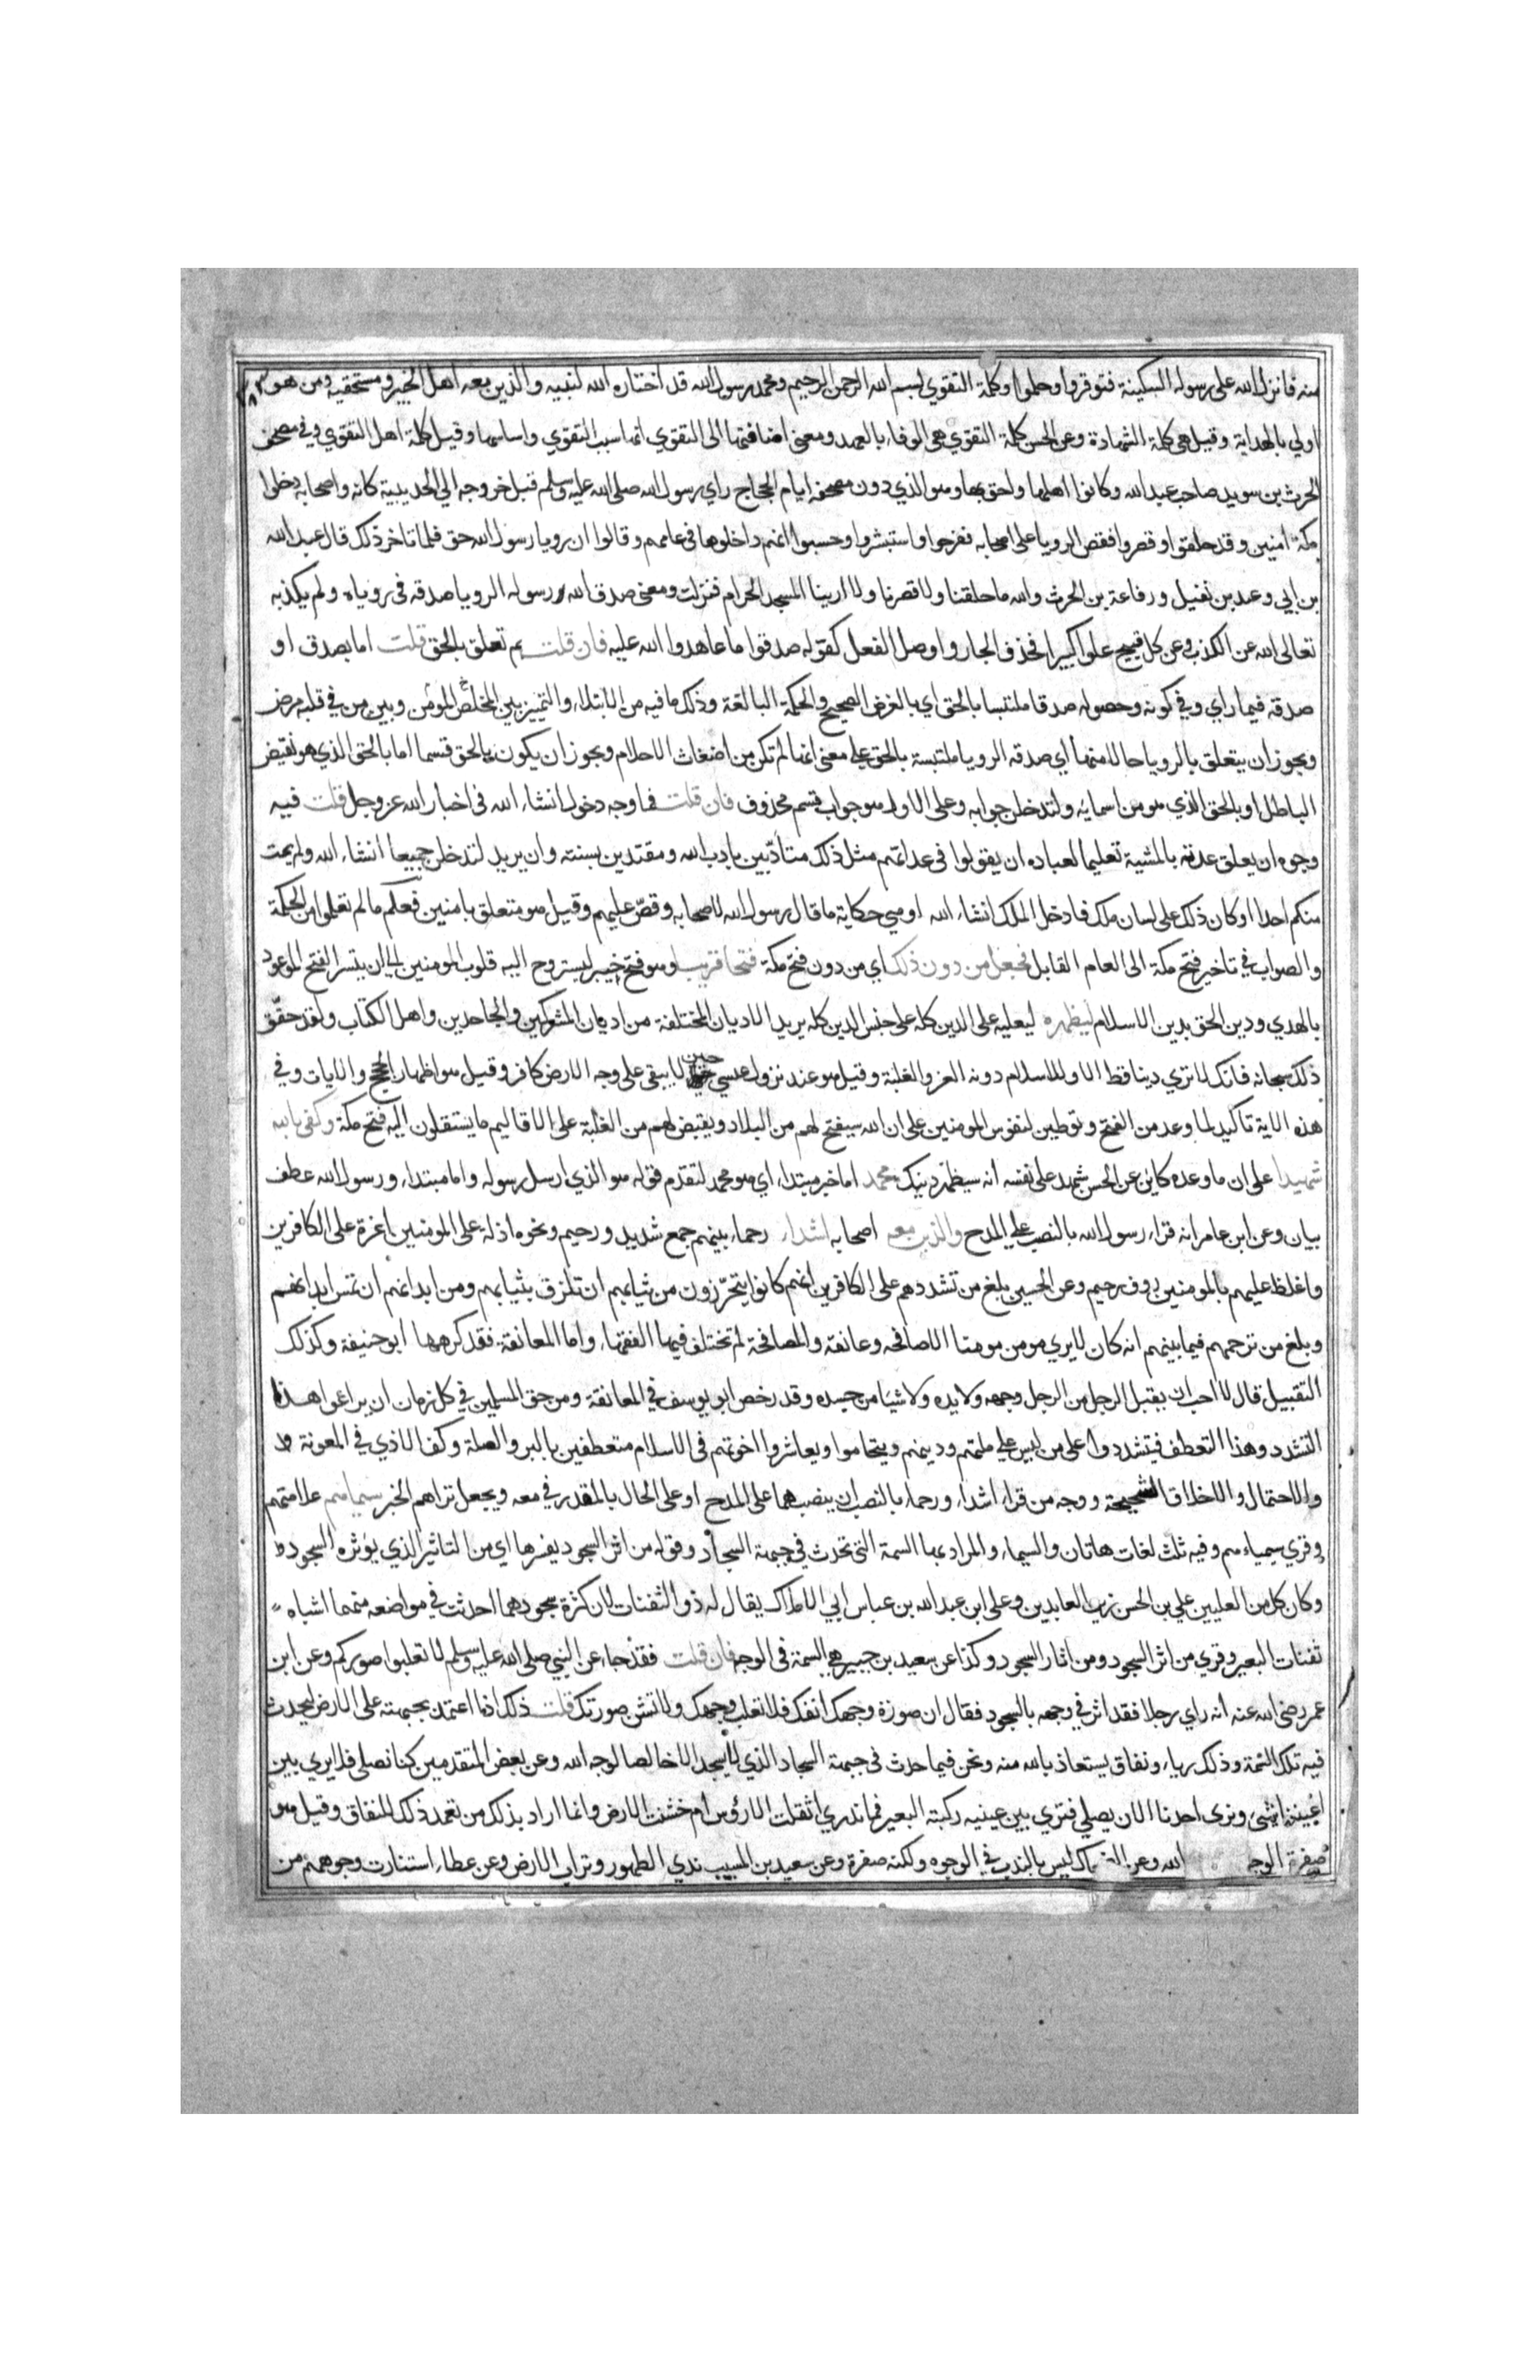 منه فانزل الله على رسوله السكينة فتوقروا وحلموا وكلمة التقوي بسم الله الرحمن الرحيم ومحمد رسول الله قد اختاره الله لنبيه والذين معه اهل الخير ومستحقيه ومن هو
اولي بالهداية وقيل هي كلمة الشهادة وعن الحسن كلمة التقوي هي الوفاء بالعهد ومعني اضافتها الى التقوي انها سبب التقوي واساسها وقيل كلمة اهل التقوي وفي مصحف
الحرث بن سويد صاحب عبد الله وكانوا اهلها واحق بها وهو الذي دون مصحفه ايام الحجاج راي رسول الله صلى الله عليه وسلم قبل خروجه الي الحديبية كانه واصحابه دخلوا
مكة امنين وقد حلقوا وقصروا فقص الرويا على اصحابه ففرحوا واستبشروا وحسبوا انهم داخلوها في عامهم وقالوا ان رويا رسول الله حق فلما تاخر ذلك قال عبد الله
بن ابي وعبد بن نفيل ورفاعة بن الحرث والله ما حلقنا ولا قصرنا ولا ارينا المسجد الحرام فنزلت ومعنى صدق الله رسوله الرويا صدقه في روياه ولم يكذبه
تعالى الله عن الكذب وعن كل قبيح علوا كبيرا فحذف الجار واوصل الفعل كقوله صدقوا ما عاهدوا الله عليه فان قلت بم تعلق بالحق قلت اما بصدق او
صدقه فيما راي وفي كونه وحصوله صدقا ملتبسا بالحق اي بالغرض الصحيح والحكمة البالغة وذلك ما فيه من الابتلاء والتمييز بين المخلص المؤمن وبين من في قلبه مرض
ويجوز ان يتعلق بالرويا حالا منها اي صدقه الرويا ملتبسة بالحق علي معنى انها لم تكن من اضغاث الاحلام ويجوز ان يكون بالحق قسما اما بالحق الذي هو نقيض
الباطل او بالحق الذي هو من اسمائه ولتدخلن جوابه وعلى الاول هو جواب قسم محذوف فان قلت فما وجه دخول انشاء الله في اخبار الله عز وجل قلت فيه
وجوه ان يعلق عدته بالمشية تعليما لعباده ان يقولوا في عداتهم مثل ذلك متأدبين بادب الله ومقتدين بسنته وان يريد لتدخلن جميعا انشاء الله ولم يمت
منكم احد او كان ذلك على لسان ملك فادخل الملك انشاء الله او هي حكاية ما قال رسول الله لاصحابه وقص عليهم وقيل هو متعلق بامنين فعلم ما لم تعلموا من الحكمة
والصواب في تاخير فتح مكة الى العام القابل فجعل من دون ذلك اي من دون فتح مكة فتحا قريبا وهو فتح خيبر ليستروح اليه قلوب المومنين الي ان يتيسر الفتح الموعود
بالهدي ودين الحق بدين الاسلام ليظهره ليعليه على الدين كله على جنس الدين كله يريد الاديان المختلفة من اديان المشركين والجاحدين واهل الكتاب ولقد حقق
ذلك سبحانه فانك لا تري دينا قط الا وللاسلام دونه العز والغلبة وقيل هو عند نزول عيسي حين لا يبقى على وجه الارض كافر وقيل هو اظهاره بالحجج والايات وفي
هذه الاية تاكيد لما وعد من الفتح وتوطين لنفوس المومنين على ان الله سيفتح لهم من البلاد ويقيض لهم من الغلبة على الاقاليم ما يستقلون اليه فتح مكة وكفى بالله
شهيدا على ان ما وعده كاين عن الحسن شهد على نفسه انه سيظهر دينك محمد اما خبر مبتداء اي هو محمد لتقدم قوله هو الذي ارسل رسوله واما مبتداء ورسول الله عطف
بيان وعن ابن عامر انه قراء رسول الله بالنصب علي المدح والذين معه اصحابه اشداء رحماء بينهم جمع شديد ورحيم ونحوه اذلة على المومنين اعزة على الكافرين
واغلظ عليهم بالمومنين روف رحيم وعن الحسين بلغ من تشددهم على الكافرين انهم كانوا يتحرزون من ثيابهم ان تلزق بثيابهم ومن ابدانهم ان تمس ابدانهم
وبلغ من ترحمهم فيما بينهم انه كان لا يري مومن مومنا الا صافحه وعانقه والمصافحة لم تختلف فيها الفقهاء واما المعانقة فقد كرهها ابو حنيفة وكذلك
التقبيل قال لا احب ان يقبل الرجل من الرجل وجهه ولا يده ولا شيئا من جسده وقد رخص ابو يوسف في المعانقة ومن حق المسلمين في كل زمان ان يراعوا هذا
التشدد وهذا التعطف فيتشددوا على من ليس علي ملتهم ودينهم ويتحاموا ويعاشروا اخوتهم في الاسلام متعطفين بالبر والصلة وكف الاذي في المعونة
والاحتمال والاخلاق السجيحة ووجه من قراء اشداء ورحماء بالنصب ان ينصبهما على المدح او على الحال بالمقدر في معه ويجعل تراهم الخبر سيماهم علامتهم
وقري سيمياءهم وفيه ثلث لغات هاتان والسيماء والمراد بها السمة التى تحدث في جبهة السجاد وقوله من اثر السجود يفسرها اي من التاثير الذي يؤثره السجود
وكان كل من العليين علي بن الحسن زين العابدين وعلى ابن عبد الله بن عباس ابي الاملاك يقال له ذو الثفنات لان كثرة سجودهما احدثت في مواضعه منهما اشباه
ثفنات البعير وقري من اثر السجود ومن اثار السجود وكذا عن سعيد بن جبير هي السمة في الوجه فان قلت فقد جاء عن النبي صلى الله عليه وسلم لا تعلبوا صوركم وعن ابن
عمر رضى الله عنه انه راي رجلا فقد اثر في وجهه بالسجود فقال ان صورة وجهك انفك فلا تعلب وجهك ولا تشن صورتك قلت ذلك اذا اعتمد بجبهته على الارض ليحدث
فيه تلك السمة وذلك رياء ونفاق يستعاذ بالله منه ونحن فيما حدث في جبهة السجاد الذي لا يسجد الا خالصا لوجه الله وعن بعض المتقدمين كنا نصلى فلا يري بين
اعيننا شي ونرى احدنا الان يصلي فتري بين عينيه ركبة البعير فما ندري اثقلت الارؤس ام خشنت الارض وانما اراد بذلك من تعمد ذلك للنفاق وقيل هو
صفرة الوجه الله وعن الضحاك ليس بالندب في الوجوه ولكنه صفرة وعن سعيد بن المسيب ندي الطهور وتراب الارض وعن عطاء استنارت وجوههم من